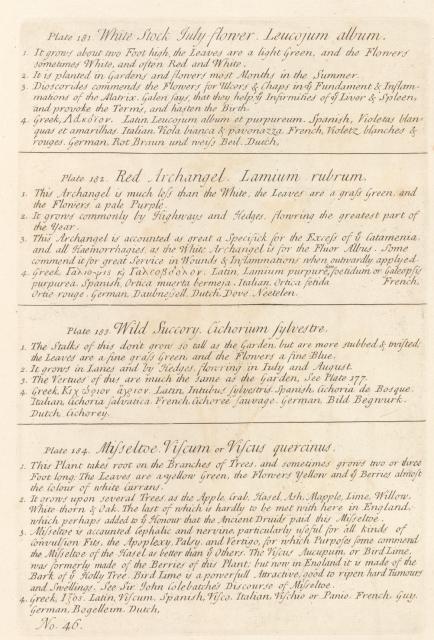 Plate 181. White Stock July flower. Leucojum album.
1. It grows about two Foot high, the Leaves are a light Green, and the Flowers
sometimes White, and often Red and White.
2. It is planted in Gardens and flowers most Months in the Summer.
3. Dioscorides commends the Flowers for Ulcers & Chaps in yͤ Fundament & Inflam-
mations of the Matrix. Galen says, that they help yͤ Infirmities of yͤ Liver & Spleen,
and provoke the Terms, and hasten the Birth.
4. Greek, Latin, Leucojum album et purpureum. Spanish, Violetas blan-
quas et amarilhas. Italian, Viola bianca & pavonazza. French, Violetz blanches &
rouges. German, Rot Braun und weiss Beil. Dutch,
Plate 182. Red Archangel. Lamium rubrum.
1. This Archangel is much less than the White, the Leaves are a grass Green, and
the Flowers a pale Purple.
2. It grows commonly by Highways and Hedges, flowring the greatest part of
the Year.
3. This Archangel is accounted as great a Specifick for the Excess of yͤ Catamenia,
and all Hæmorrhagies, as the White Archangel is for the Fluor Albus. Some
commend it for great Service in Wounds & Inflammations when outwardly applyed.
4. Greek, Latin, Lamium purpureum foetidum or Galeopsis
purpurea. Spanish, Ortica muerta bermeja. Italian, Ortica fetida French,
Ortie rouge. German, Daubnessell. Dutch, Dove Neetelen.
Plate 183. Wild Succory. Cichorium sylvestre.
1. The Stalks of this don't grow so tall as the Garden, but are more stubbed & twisted;
the Leaves are a fine grass Green, and the Flowers a fine Blue.
2. It grows in Lanes and by Hedges, flowring in July and August.
3. The Vertues of this are much the same as the Garden, See Plate 177.
4. Greek, Κιχώριον ἄγριον. Latin, Intubus sylvestris. Spanish, Cichoria de Bosque.
Italian, Cichoria salvatica. French, Cichoree sauvage. German, Bild Begwurk.
Dutch, Cichorey.
Plate 184. Misseltoe. Viscum or Viscus quercinus.
1. This Plant takes root on the Branches of Trees, and sometimes grows two or three
Foot long; The Leaves are a yellow Green, the Flowers Yellow and yͤ Berries almost
the Colour of white Currans.
2. It grows upon several Trees, as the Apple, Crab, Hasel, Ash, Mapple, Lime, Willow,
White thorn & Oak. The last of which is hardly to be met with here in England,
which perhaps added to yͤ Honour that the Ancient Druids paid this Misseltoe.
3. Misseltoe is accounted Cephalic and nervine, particularly useful for all kinds of
Convulsion Fits, the Apoplexy, Palsy, and Vertigo, for which Purposes some commend
the Misseltoe of the Hasel as better than yͤ Others. The Viscus Aucupum, or Bird Lime,
was formerly made of the Berries of this Plant; but now in England it is made of the
Bark of yͤ Holly Tree. Bird Lime is a powerfull Attractive, good to ripen hard Tumours
and Swellings. See Sir John Colebatch's Discourse of Misseltoe.
4. Greek, Ἰξός. Latin, Viscum. Spanish, Visco. Italian, Vischio or Panio. French, Guy.
German, Bogelleim. Dutch,
No. 46.